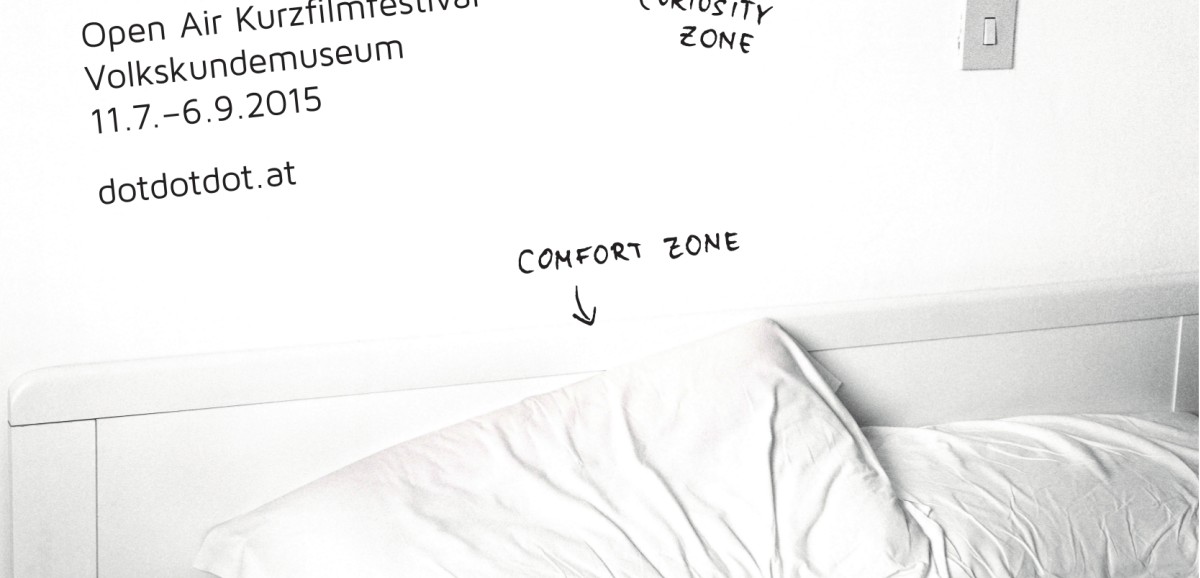 Open Air Kurzfilmfestival
Volkskundemuseum
11.7.–6.9.2015
dotdotdot.at
CURIOSITY
ZONE
COMFORT ZONE